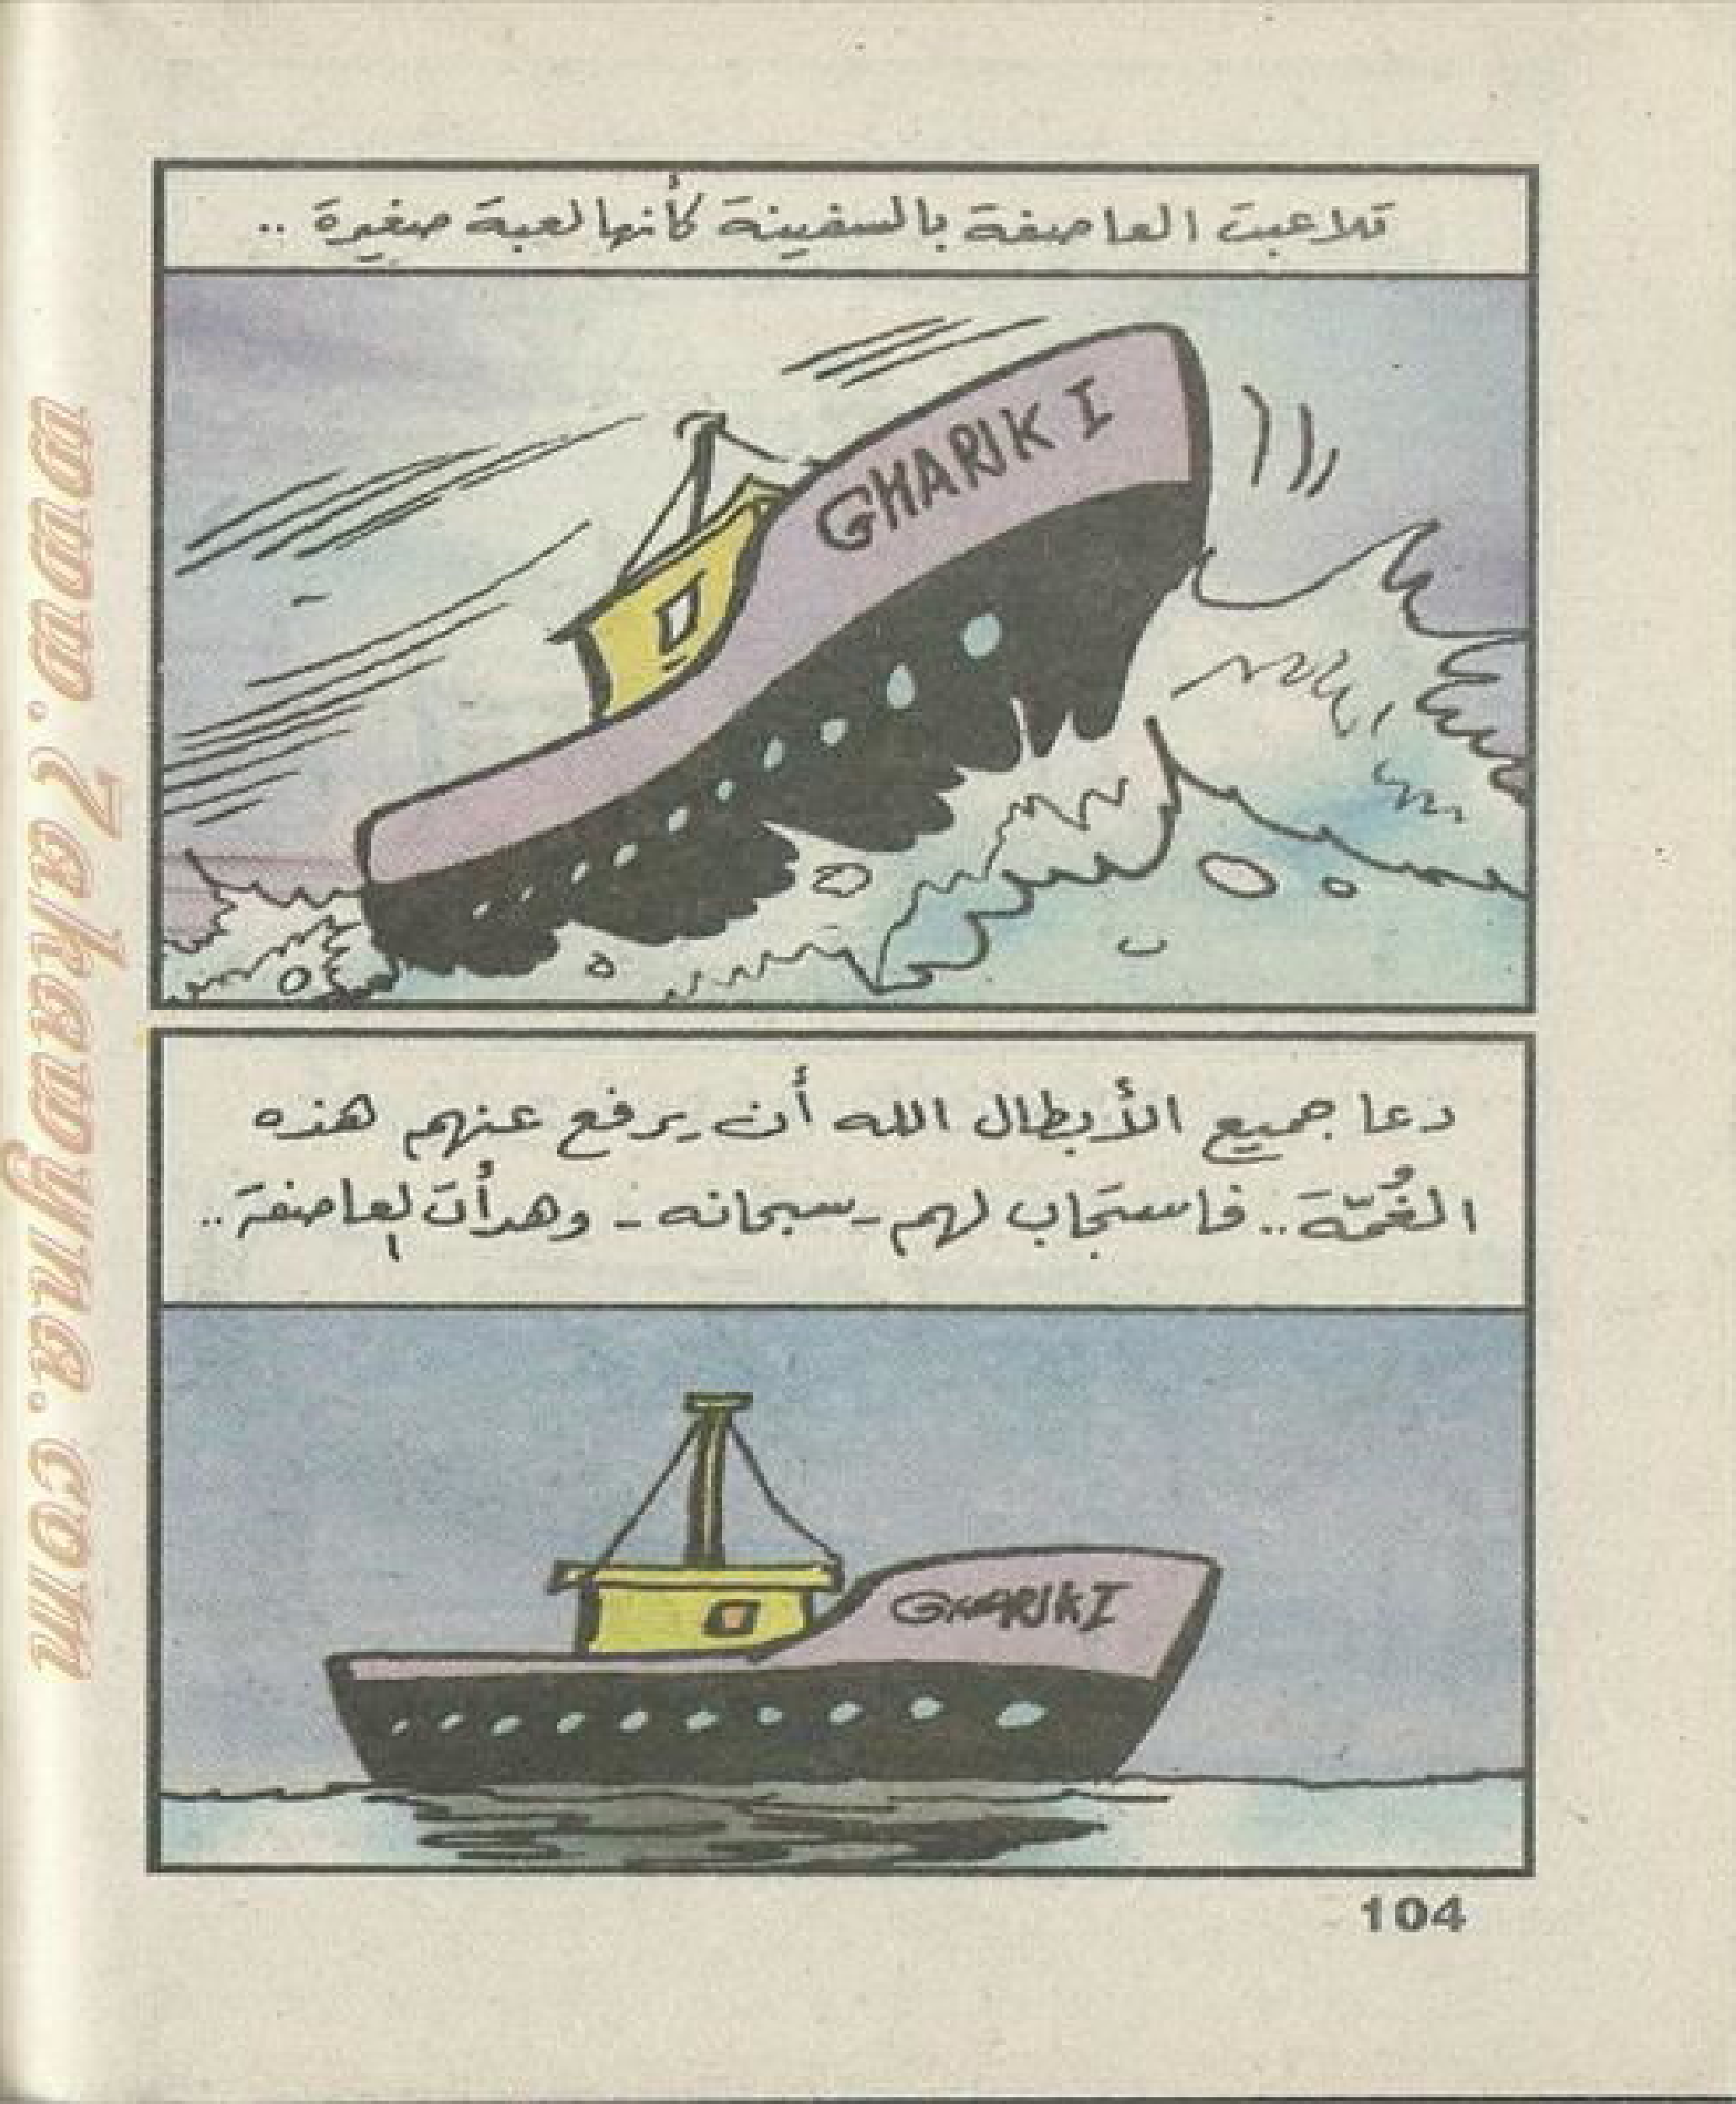 تلاعبت العاصفة بالسفينة كأنها لعبة صغيرة ..
GHARIK I
دعا جميع الأبطال الله أن يرفع عنهم هذه
الغُمّة .. فاستجاب لهم - سبحانه - وهدأت العاصفة ..
GHARIK I
104
www.7akawyna.com